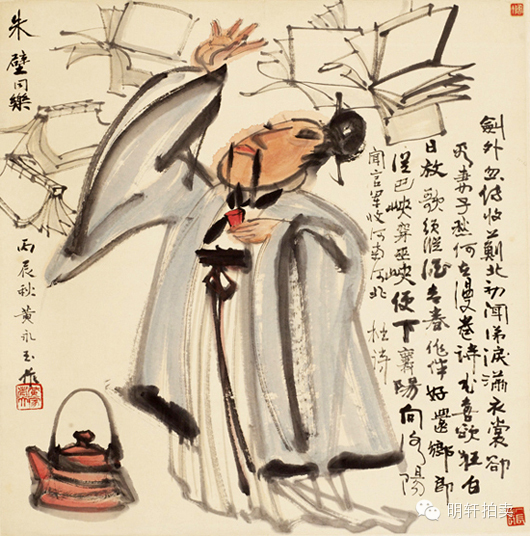 劍外忽传收薊北初闻涕淚滿衣裳卻
看妻子愁何在漫卷詩书喜欲狂白
日放歌须縱酒青春作伴好還鄉即
從巴峡穿巫峡便下襄陽向洛陽
闻官军收河南河北 杜诗
朱壁同樂
丙辰秋黄永玉作
明轩拍卖